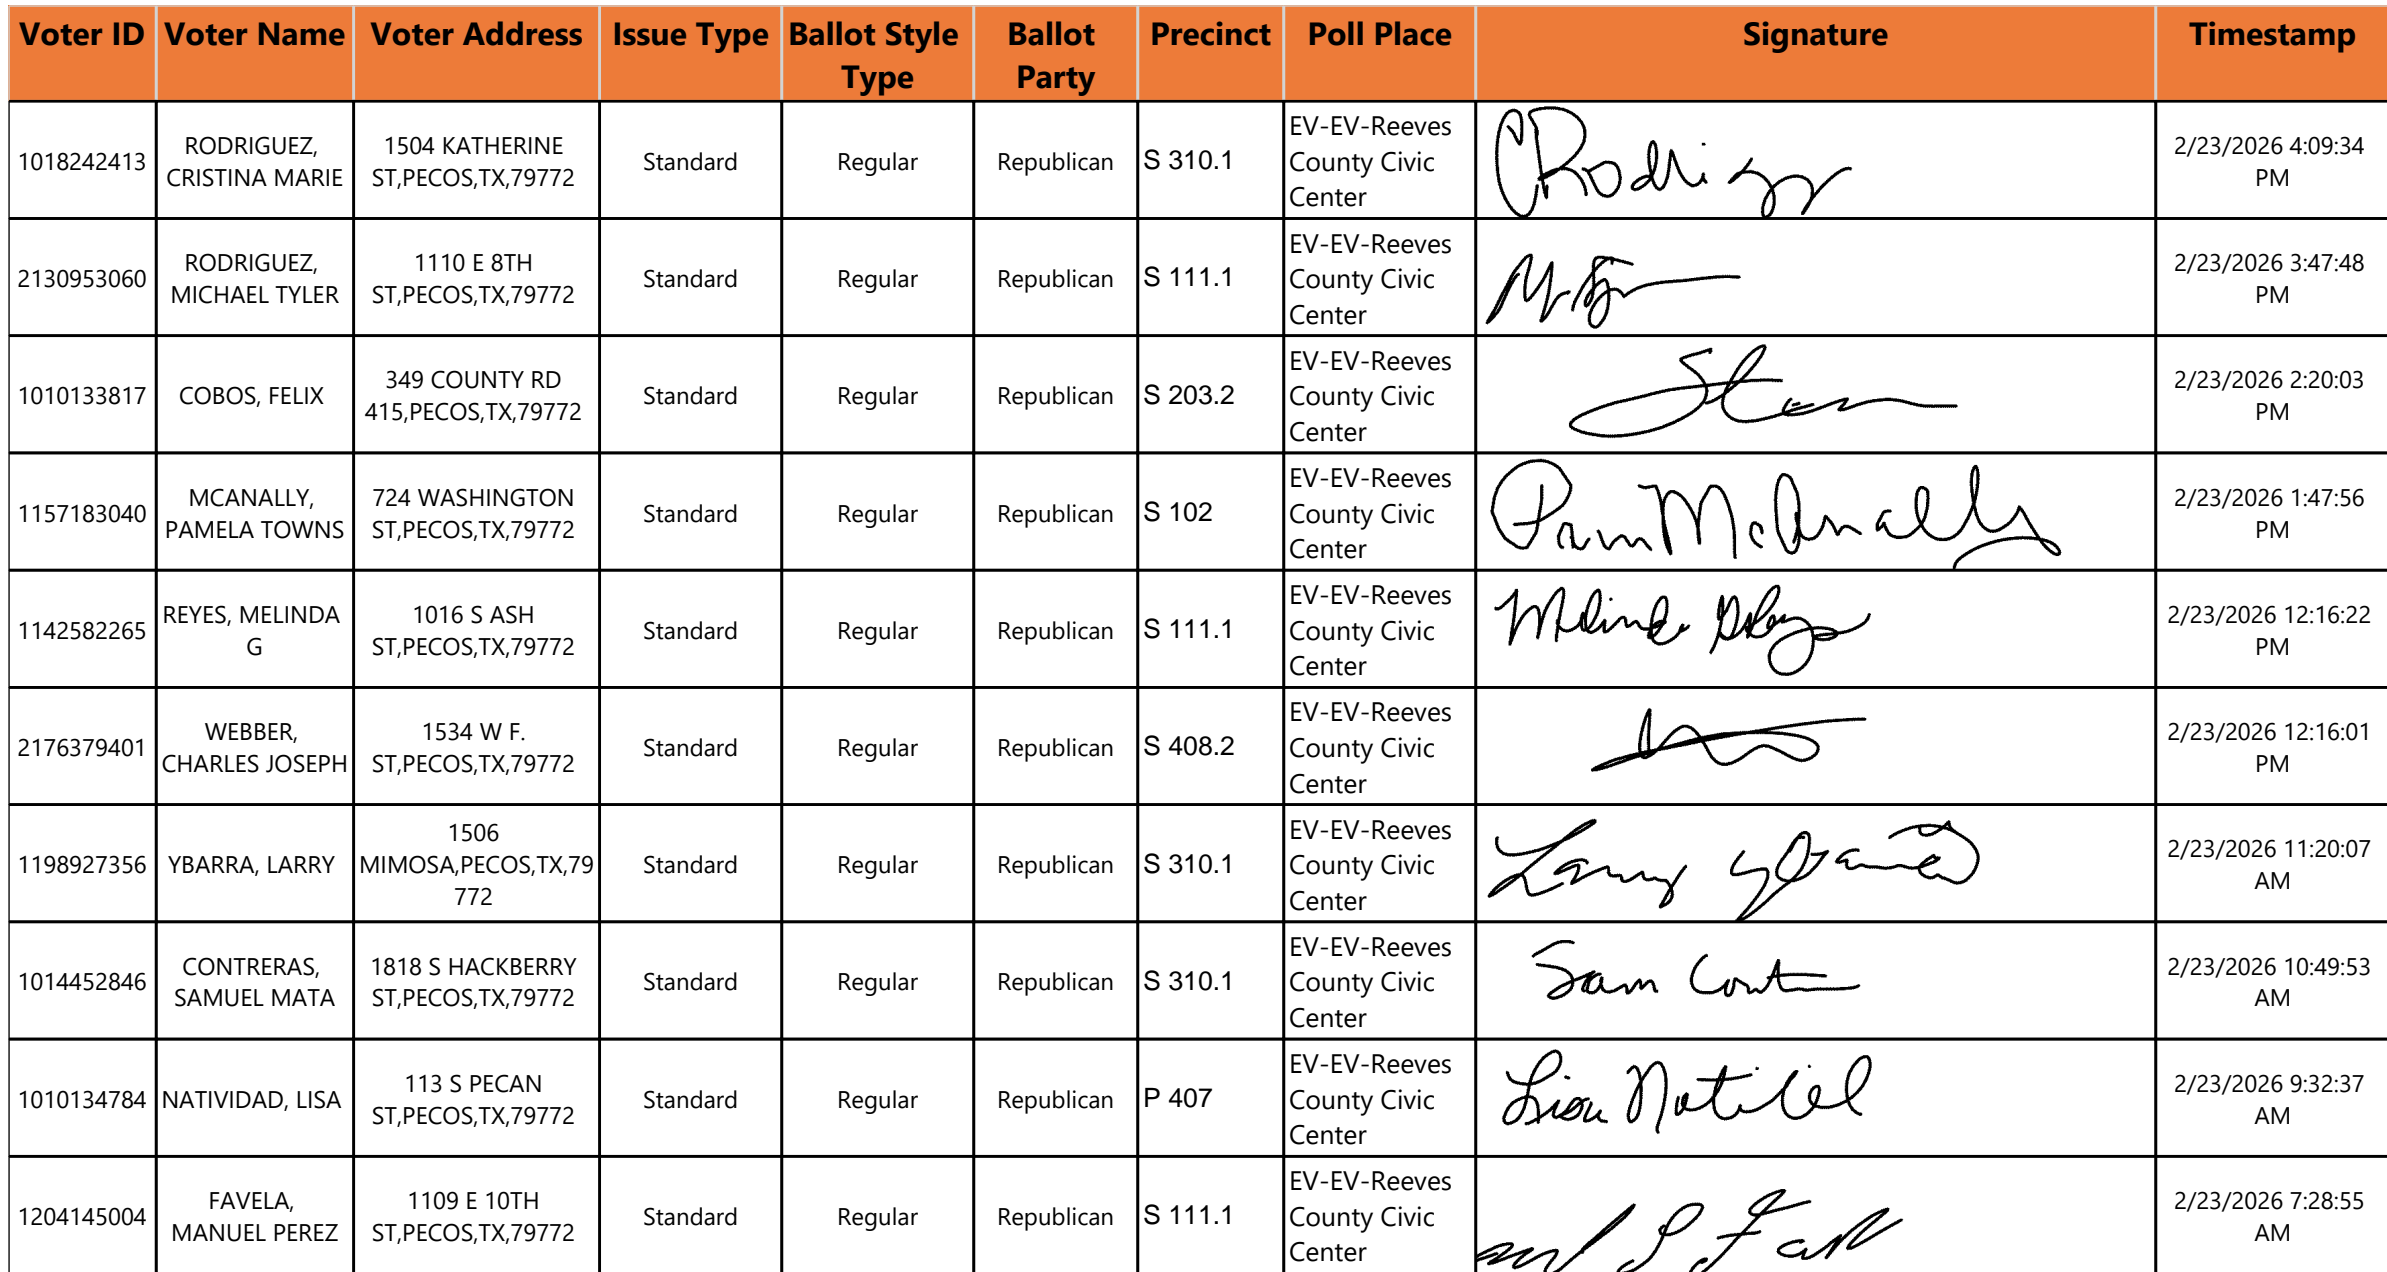 Voter ID Voter Name Voter Address Issue Type Ballot Style Type Ballot Party Precinct Poll Place Signature Timestamp
1018242413 RODRIGUEZ, CRISTINA MARIE 1504 KATHERINE ST,PECOS,TX,79772 Standard Regular Republican S 310.1 EV-EV-Reeves County Civic Center CRodrigz 2/23/2026 4:09:34 PM
2130953060 RODRIGUEZ, MICHAEL TYLER 1110 E 8TH ST,PECOS,TX,79772 Standard Regular Republican S 111.1 EV-EV-Reeves County Civic Center 2/23/2026 3:47:48 PM
1010133817 COBOS, FELIX 349 COUNTY RD 415,PECOS,TX,79772 Standard Regular Republican S 203.2 EV-EV-Reeves County Civic Center 2/23/2026 2:20:03 PM
1157183040 MCANALLY, PAMELA TOWNS 724 WASHINGTON ST,PECOS,TX,79772 Standard Regular Republican S 102 EV-EV-Reeves County Civic Center Pam McAnally 2/23/2026 1:47:56 PM
1142582265 REYES, MELINDA G 1016 S ASH ST,PECOS,TX,79772 Standard Regular Republican S 111.1 EV-EV-Reeves County Civic Center Melinda 2/23/2026 12:16:22 PM
2176379401 WEBBER, CHARLES JOSEPH 1534 W F. ST,PECOS,TX,79772 Standard Regular Republican S 408.2 EV-EV-Reeves County Civic Center 2/23/2026 12:16:01 PM
1198927356 YBARRA, LARRY 1506 MIMOSA,PECOS,TX,79772 Standard Regular Republican S 310.1 EV-EV-Reeves County Civic Center Larry Ybarra 2/23/2026 11:20:07 AM
1014452846 CONTRERAS, SAMUEL MATA 1818 S HACKBERRY ST,PECOS,TX,79772 Standard Regular Republican S 310.1 EV-EV-Reeves County Civic Center Sam Cont 2/23/2026 10:49:53 AM
1010134784 NATIVIDAD, LISA 113 S PECAN ST,PECOS,TX,79772 Standard Regular Republican P 407 EV-EV-Reeves County Civic Center Lisa 2/23/2026 9:32:37 AM
1204145004 FAVELA, MANUEL PEREZ 1109 E 10TH ST,PECOS,TX,79772 Standard Regular Republican S 111.1 EV-EV-Reeves County Civic Center 2/23/2026 7:28:55 AM